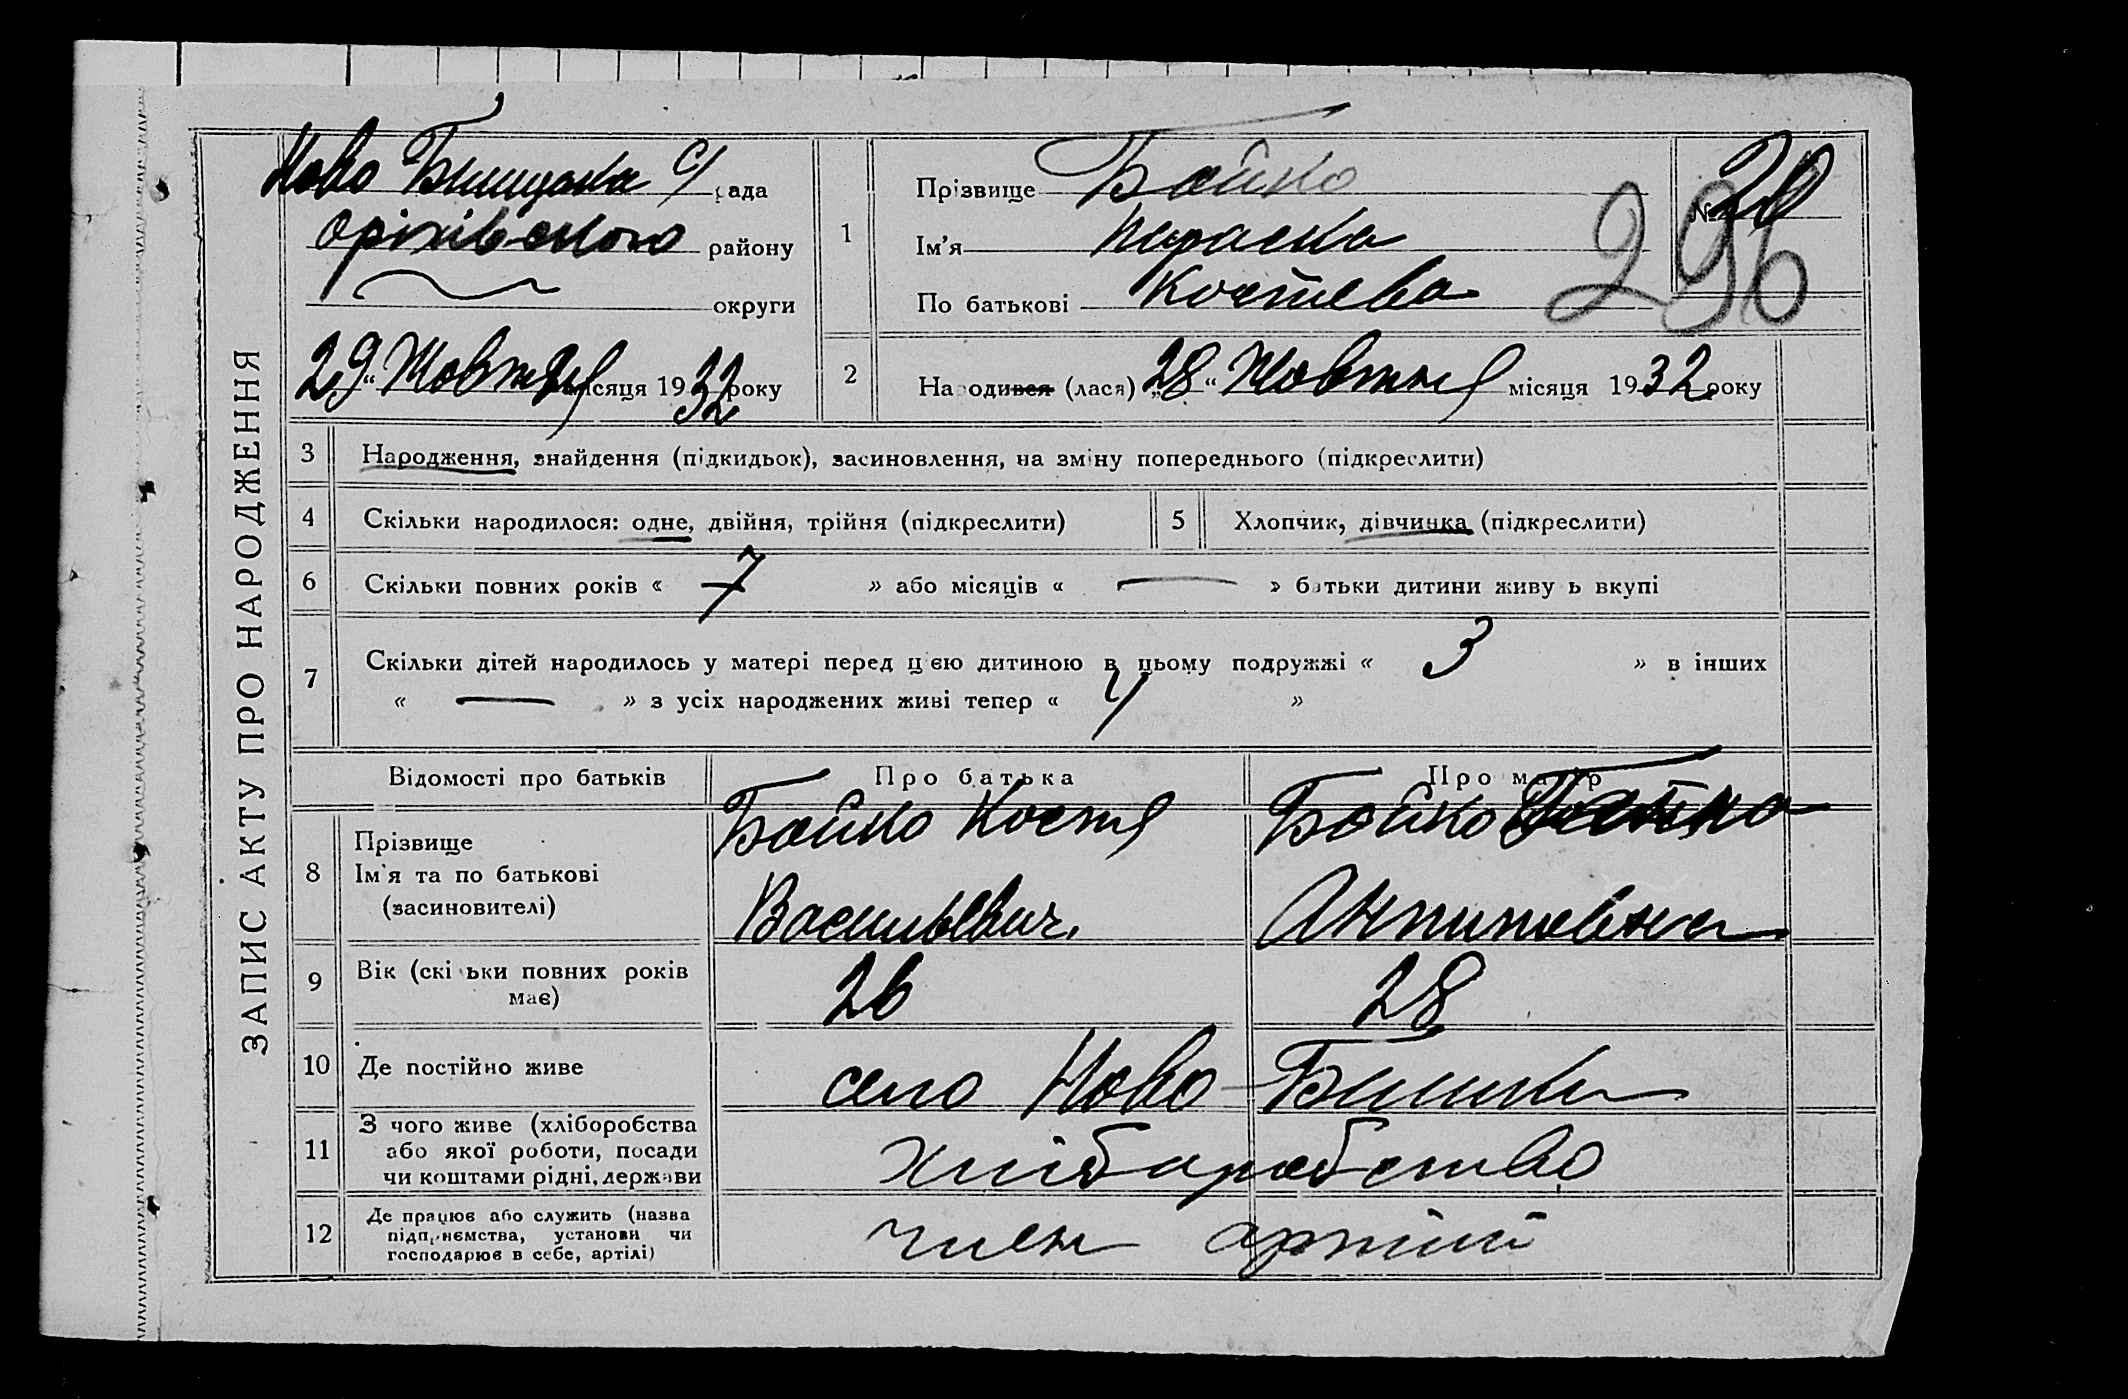 ЗАПИС АКТУ ПРО НАРОДЖЕННЯ
Ново с/рада
Оріхівського району
округи
29 " Жовтня місяця 1932 року
1
Прізвище Бойко
Ім'я Параска
По батькові Костєва
№ 20
296
2
Народився (лася) „28" Жовтня місяця 1932 року
3 Народження, знайдення (підкидьок), засиновлення, на зміну попереднього (підкреслити)
4 Скільки народилося: одне, двійня, трійня (підкреслити)
5 Хлопчик, дівчинка (підкреслити)
6 Скільки повних років « 7 » або місяців « — » батьки дитини живуть вкупі
7 Скільки дітей народилось у матері перед цією дитиною в цьому подружжі « 3 » в інших
« — » з усіх народжених живі тепер « »
Відомості про батьків Про батька Про матір
8
Прізвище
Ім'я та по батькові
(засиновителі)
Бойко Костя
Васильевич.
Бойко
Антиповна
9
Вік (скільки повних років
має)
26
28
10 Де постійно живе
село Ново
11
З чого живе (хліборобства
або якої роботи, посади
чи коштами рідні, держави
хліборобство
12
Де працює або служить (назва
підприємства, установи чи
господарює в себе, артілі)
член артілі